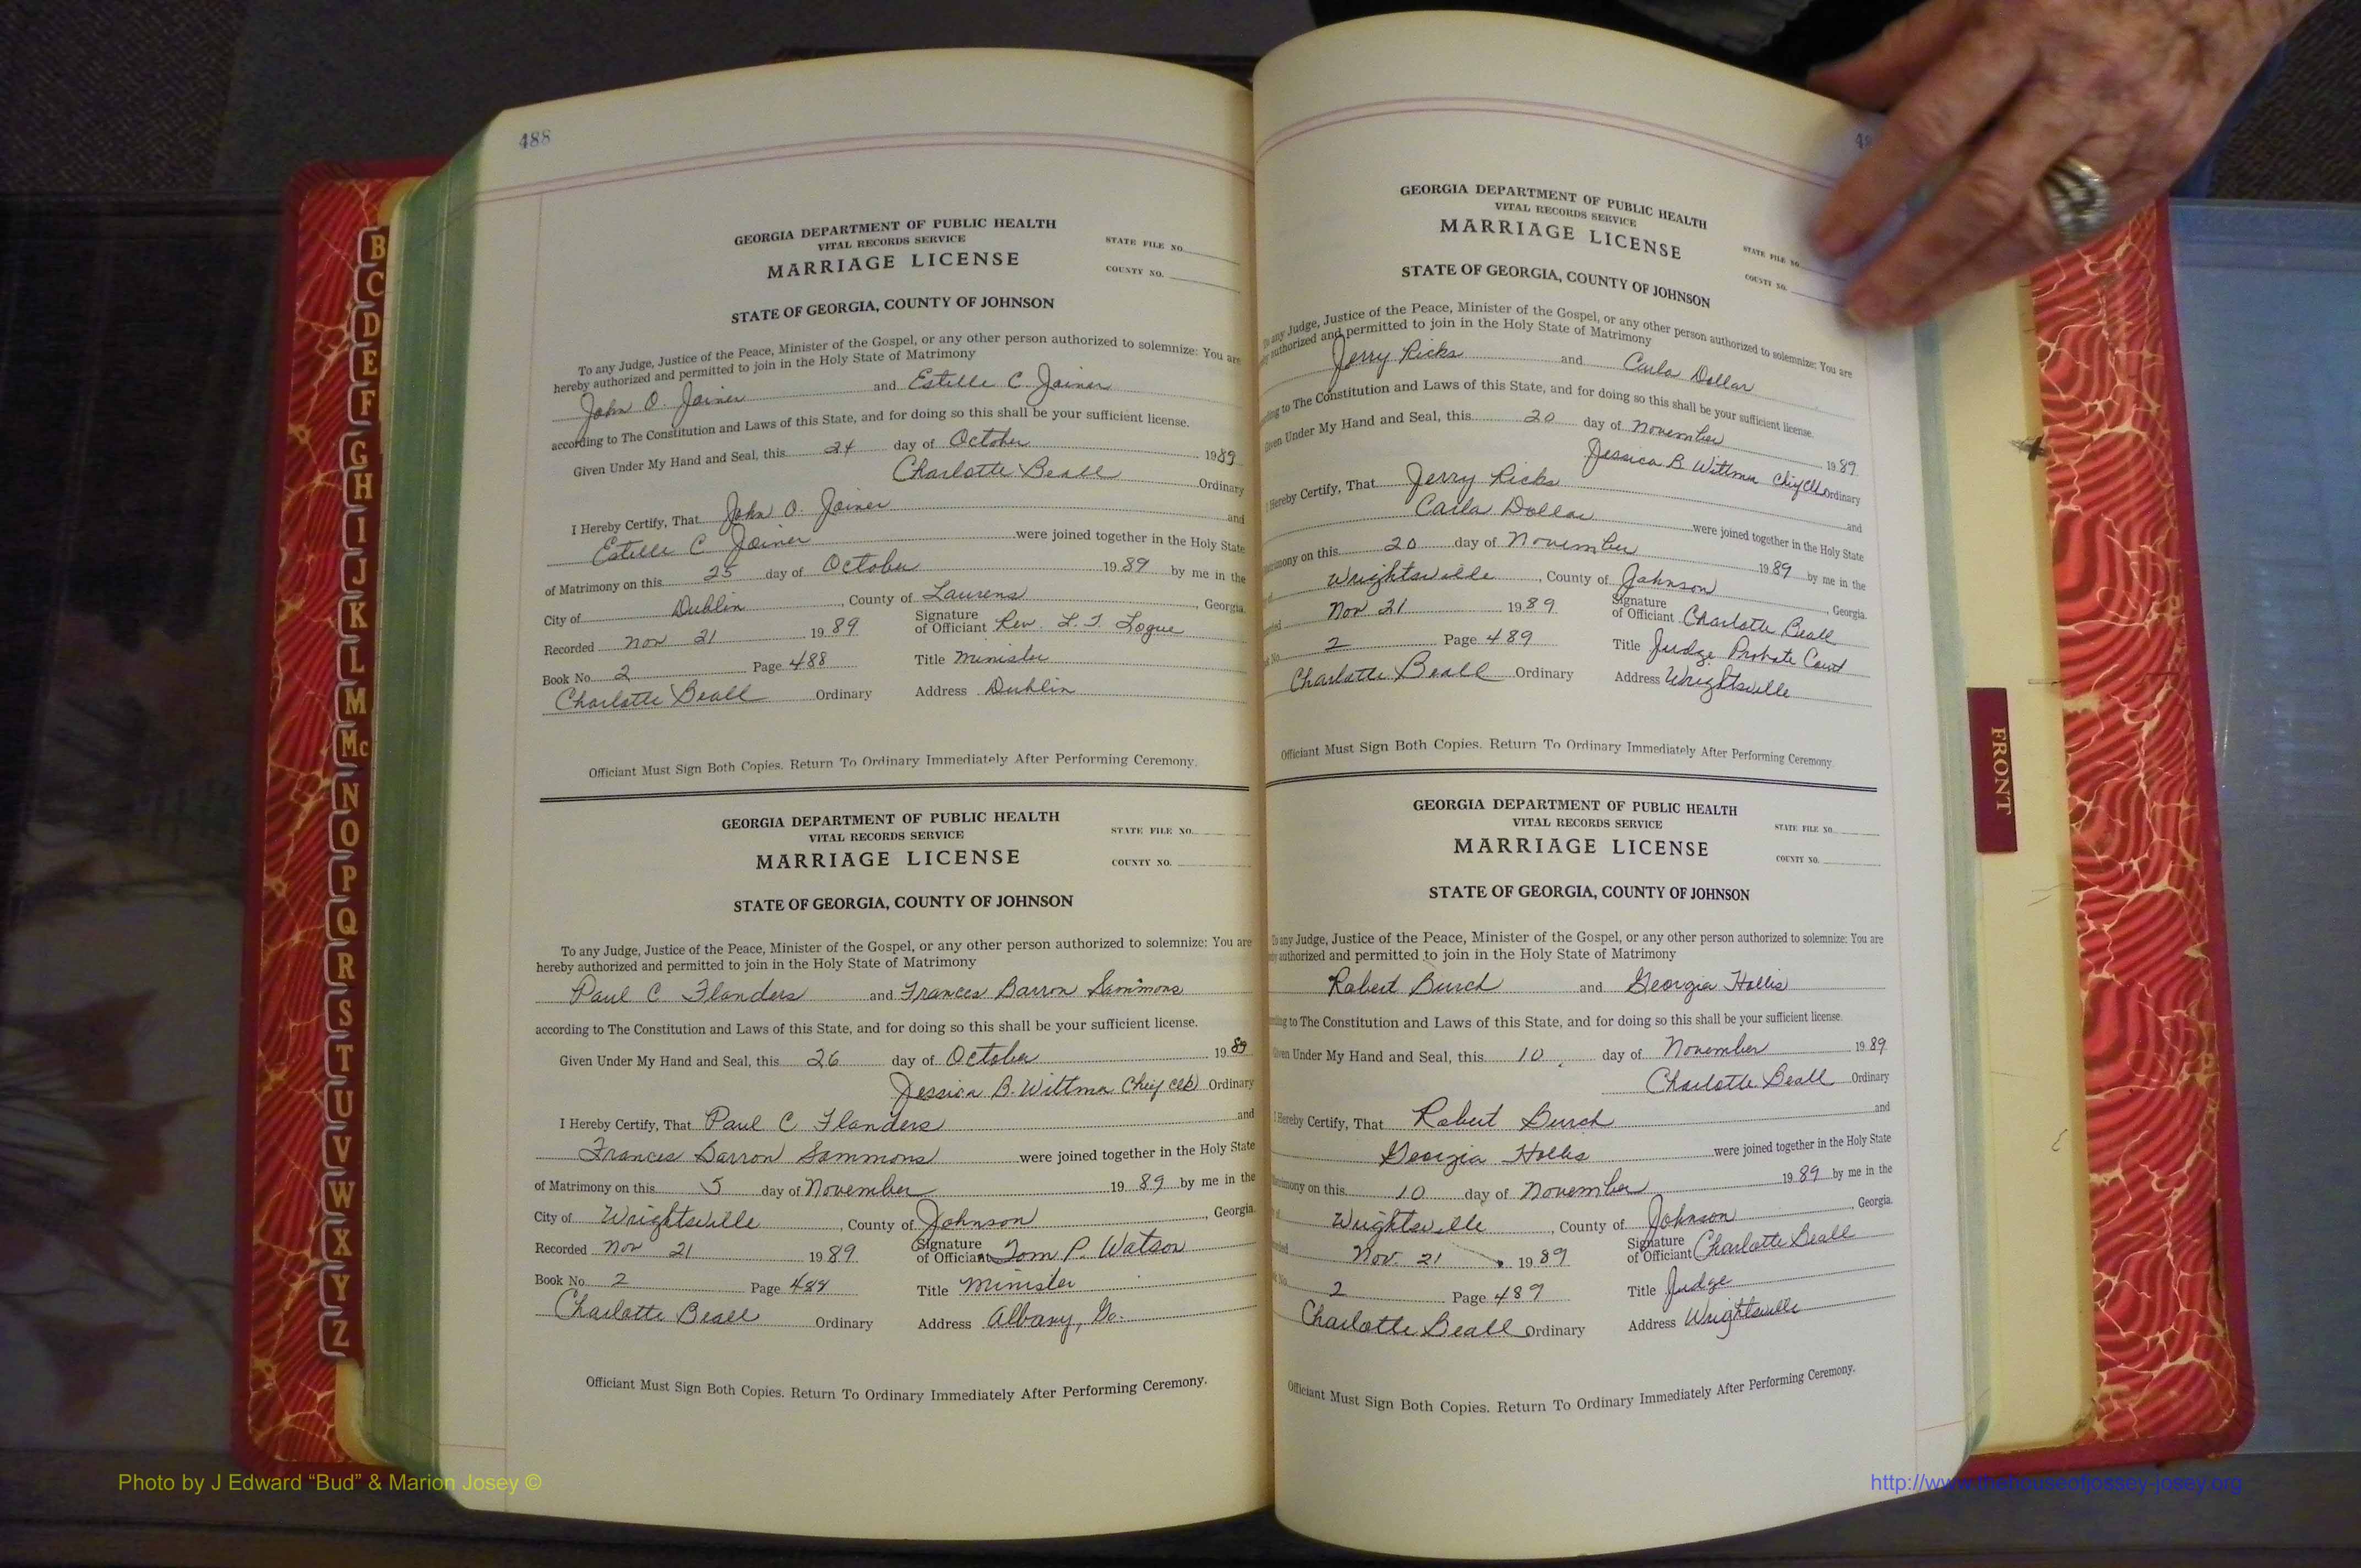 488
GEORGIA DEPARTMENT OF PUBLIC HEALTH
VITAL RECORDS SERVICE
MARRIAGE LICENSE
STATE FILE NO.
COUNTY NO.
STATE OF GEORGIA, COUNTY OF JOHNSON
To any Judge, Justice of the Peace, Minister of the Gospel, or any other person authorized to solemnize: You are
hereby authorized and permitted to join in the Holy State of Matrimony
John O. Joiner and Estelle C. Joiner
according to The Constitution and Laws of this State, and for doing so this shall be your sufficient license.
Given Under My Hand and Seal, this 24 day of October 1989
Charlotte Beall Ordinary
I Hereby Certify, That John O. Joiner and
Estelle C Joiner were joined together in the Holy State
of Matrimony on this 25 day of October 1989 by me in the
City of Dublin, County of Laurens, Georgia.
Recorded Nov 21 1989 Signature of Officiant Rev. L. T. Logue
Book No. 2 Page 488 Title Minister
Charlotte Beall Ordinary Address Dublin
Officiant Must Sign Both Copies. Return To Ordinary Immediately After Performing Ceremony.
GEORGIA DEPARTMENT OF PUBLIC HEALTH
VITAL RECORDS SERVICE
MARRIAGE LICENSE
STATE FILE NO.
COUNTY NO.
STATE OF GEORGIA, COUNTY OF JOHNSON
To any Judge, Justice of the Peace, Minister of the Gospel, or any other person authorized to solemnize: You are
hereby authorized and permitted to join in the Holy State of Matrimony
Paul C Flanders and Frances Barron Sammons
according to The Constitution and Laws of this State, and for doing so this shall be your sufficient license.
Given Under My Hand and Seal, this 26 day of October 1989
Jessica B. Wittma Chief Clk Ordinary
I Hereby Certify, That Paul C Flanders and
Frances Barron Sammons were joined together in the Holy State
of Matrimony on this 5 day of November 1989 by me in the
City of Wrightsville, County of Johnson, Georgia.
Recorded Nov 21 1989 Signature of Officiant Tom P. Watson
Book No. 2 Page 488 Title Minister
Charlotte Beall Ordinary Address Albany, Ga.
Officiant Must Sign Both Copies. Return To Ordinary Immediately After Performing Ceremony.
48
GEORGIA DEPARTMENT OF PUBLIC HEALTH
VITAL RECORDS SERVICE
MARRIAGE LICENSE
STATE FILE NO.
COUNTY NO.
STATE OF GEORGIA, COUNTY OF JOHNSON
To any Judge, Justice of the Peace, Minister of the Gospel, or any other person authorized to solemnize: You are
by authorized and permitted to join in the Holy State of Matrimony
Jerry Ricks and Carla Dollar
ding to The Constitution and Laws of this State, and for doing so this shall be your sufficient license.
Given Under My Hand and Seal, this 20 day of November 1989
Jessica B Wittma Chief Clk Ordinary
I Hereby Certify, That Jerry Ricks and
Carla Dollar were joined together in the Holy State
imony on this 20 day of November 1989 by me in the
Wrightsville, County of Johnson, Georgia.
Nov 21 1989 Signature of Officiant Charlotte Beall
2 Page 489 Title Judge Probate Court
Charlotte Beall Ordinary Address Wrightsville
Officiant Must Sign Both Copies. Return To Ordinary Immediately After Performing Ceremony.
GEORGIA DEPARTMENT OF PUBLIC HEALTH
VITAL RECORDS SERVICE
MARRIAGE LICENSE
STATE FILE NO.
COUNTY NO.
STATE OF GEORGIA, COUNTY OF JOHNSON
To any Judge, Justice of the Peace, Minister of the Gospel, or any other person authorized to solemnize: You are
by authorized and permitted to join in the Holy State of Matrimony
Robert Burch and Georgia Hollis
ding to The Constitution and Laws of this State, and for doing so this shall be your sufficient license.
Given Under My Hand and Seal, this 10 day of November 1989
Charlotte Beall Ordinary
I Hereby Certify, That Robert Burch and
Georgia Hollis were joined together in the Holy State
trimony on this 10 day of November 1989 by me in the
Wrightsville, County of Johnson, Georgia.
Nov. 21 1989 Signature of Officiant Charlotte Beall
2 Page 489 Title Judge
Charlotte Beall Ordinary Address Wrightsville
Officiant Must Sign Both Copies. Return To Ordinary Immediately After Performing Ceremony.
B
C
D
E
F
G
H
I
J
K
L
M
Mc
N
O
P
Q
R
S
T
U
V
W
X
Y
Z
FRONT
Photo by J Edward “Bud” & Marion Josey ©
http://www.thehouseofjossey-josey.org